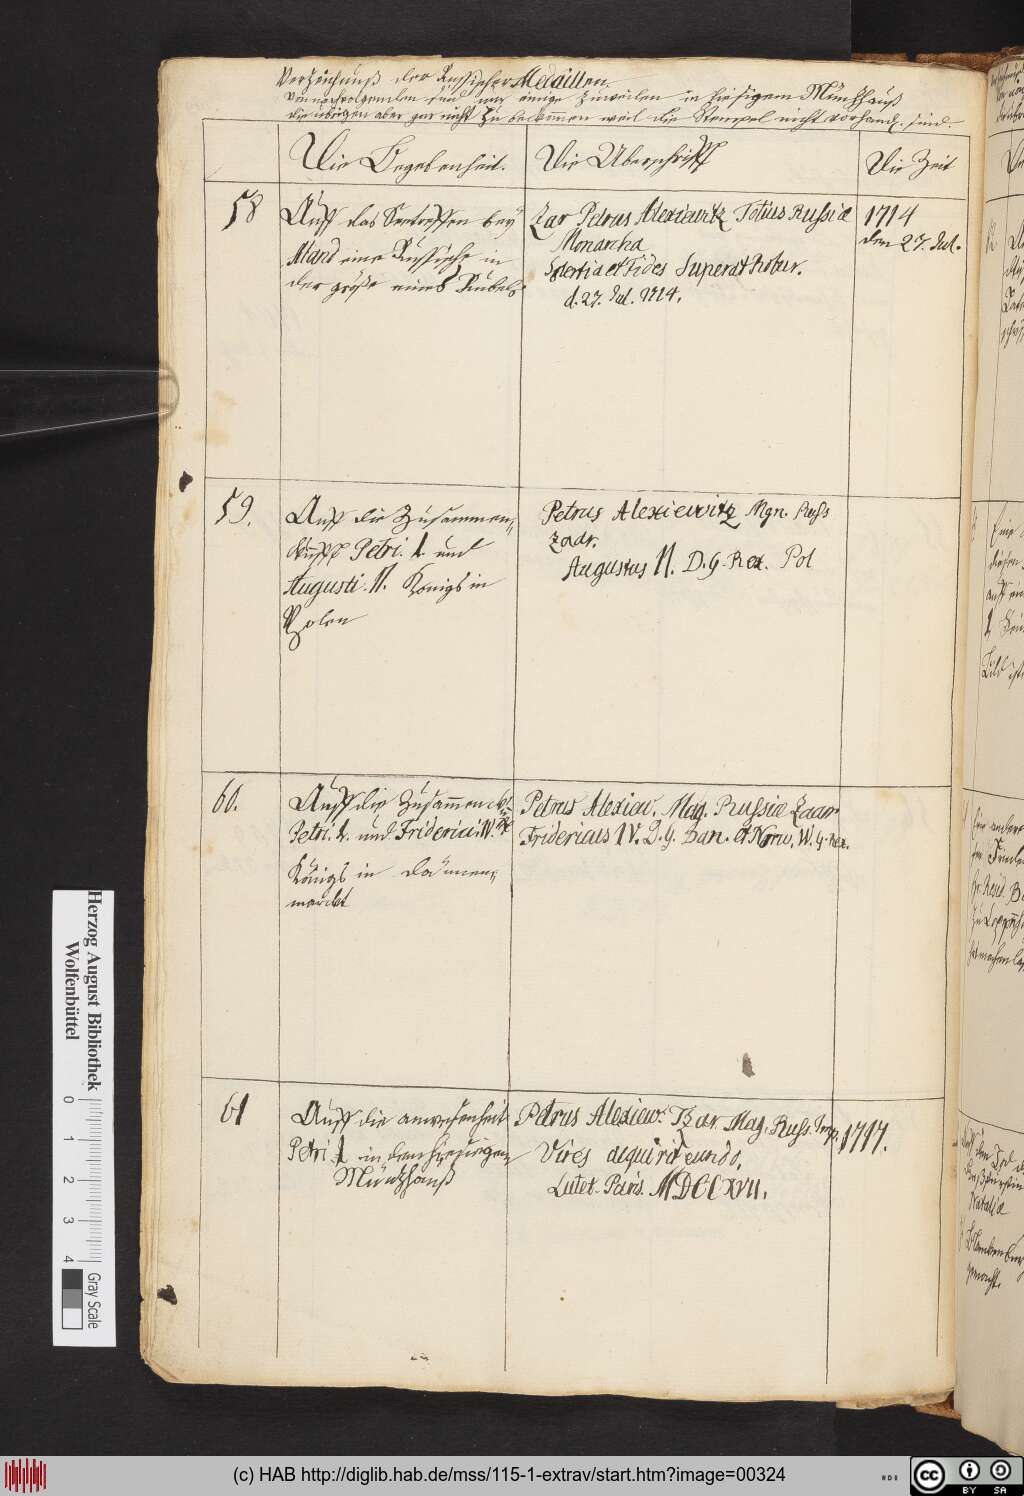 Verzeichnuß der Russischen Medaillen.
Von nachfolgenden sind nur einige zuweilen in hiesigem Müntzhauß
die übrigen aber gar nicht zu bekommen weil die Stempel nicht vorhand. sind.
Die Begebenheit. Die Uberschrifft Die Zeit
58 Auff das Seetreffen bey
Aland eine Russische in
der größe eines Rubels
Zar Petrus Alexiewitz Totius Russiæ
Monarcha
Solertia et Fides Superat Robur.
d. 27. Jul. 1714.
1714
den 27. Jul.
59. Auff die Zusammen„
kunfft Petri. I. und
Augusti. II. Königs in
Polen
Petrus Alexiewitz Mgn. Russ
Zaar.
Augustus II. D. G. Rex. Pol
60. Auff die Zusammenk„
Petri. I. und Friderici. IV.
Königs in Dännen„
marckt
Petrus Alexiew. Mag. Russiæ Zaar
Fridericus IV. D. G. Dan. et Norw. W. G. Rex.
61 Auff die anwesenheit
Petri. I. in dem hiesigen
Müntzhauß
Petrus Alexiew. Tzar. Mag. Russ. Imp.
Vires aquirit eundo.
Lutet. Paris. MDCCXVII.
1717.
Herzog August Bibliothek
Wolfenbüttel
0 1 2 3 4
Gray Scale
(c) HAB http://diglib.hab.de/mss/115-1-extrav/start.htm?image=00324
cc BY SA